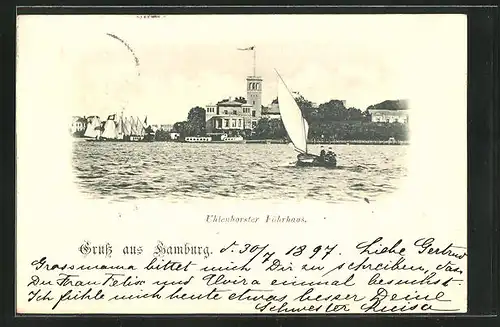 Uhlenhorster Fährhaus.
Gruß aus Hamburg. d. 30/7 1897. Liebe Gertrud
Grossmama bittet mich Dir zu schreiben, dass
Du Frau Felix und Elvira einmal besuchst.
Ich fühle mich heute etwas besser Deine
Schwester Luisa